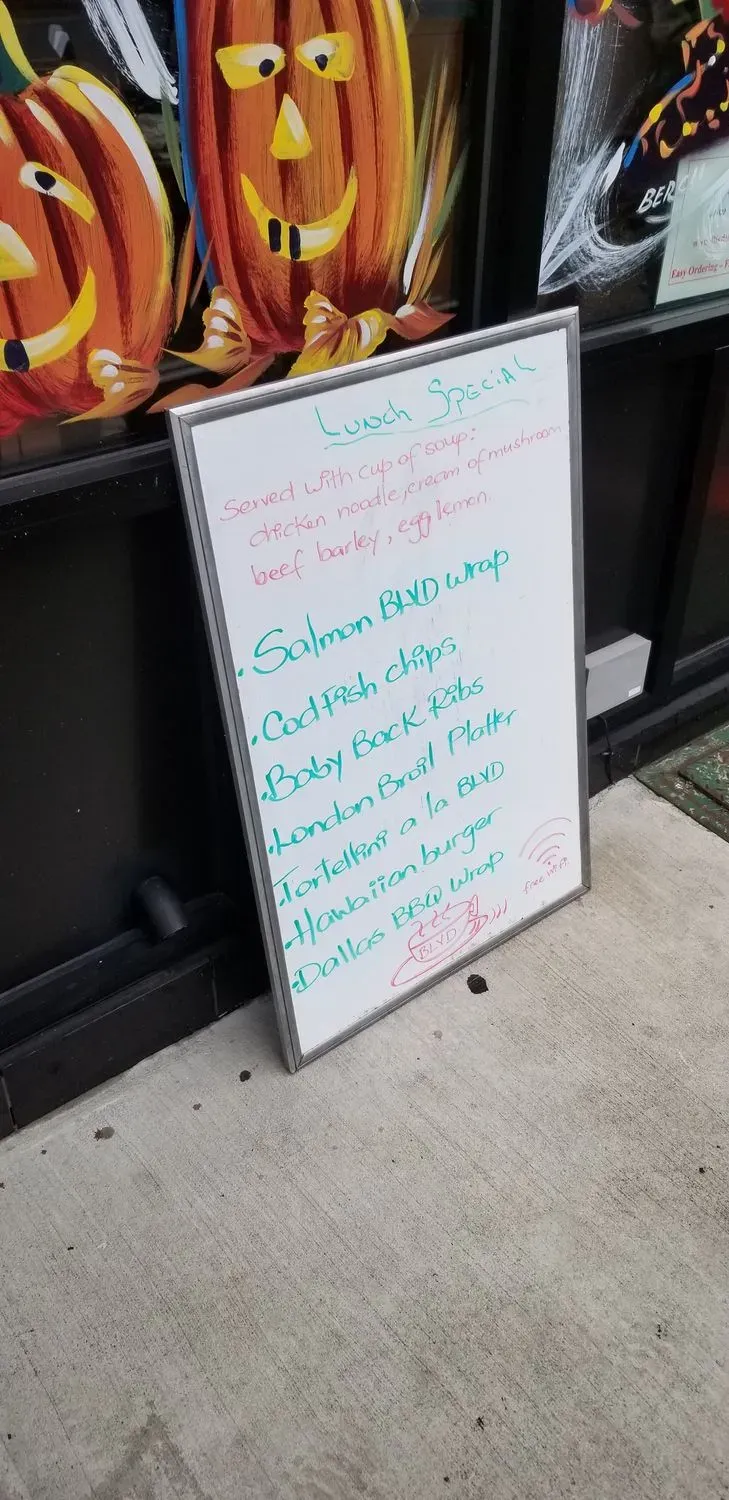 Lunch Special
Served with cup of soup:
chicken noodle, cream of mushroom
beef barley, egg lemon.
• Salmon BLVD wrap
• Cod Fish chips
• Baby Back Ribs
• London Broil Platter
• Tortellini a la BLVD
• Hawaiian burger
• Dallas BBQ wrap
free WiFi
BLVD
Easy Ordering -